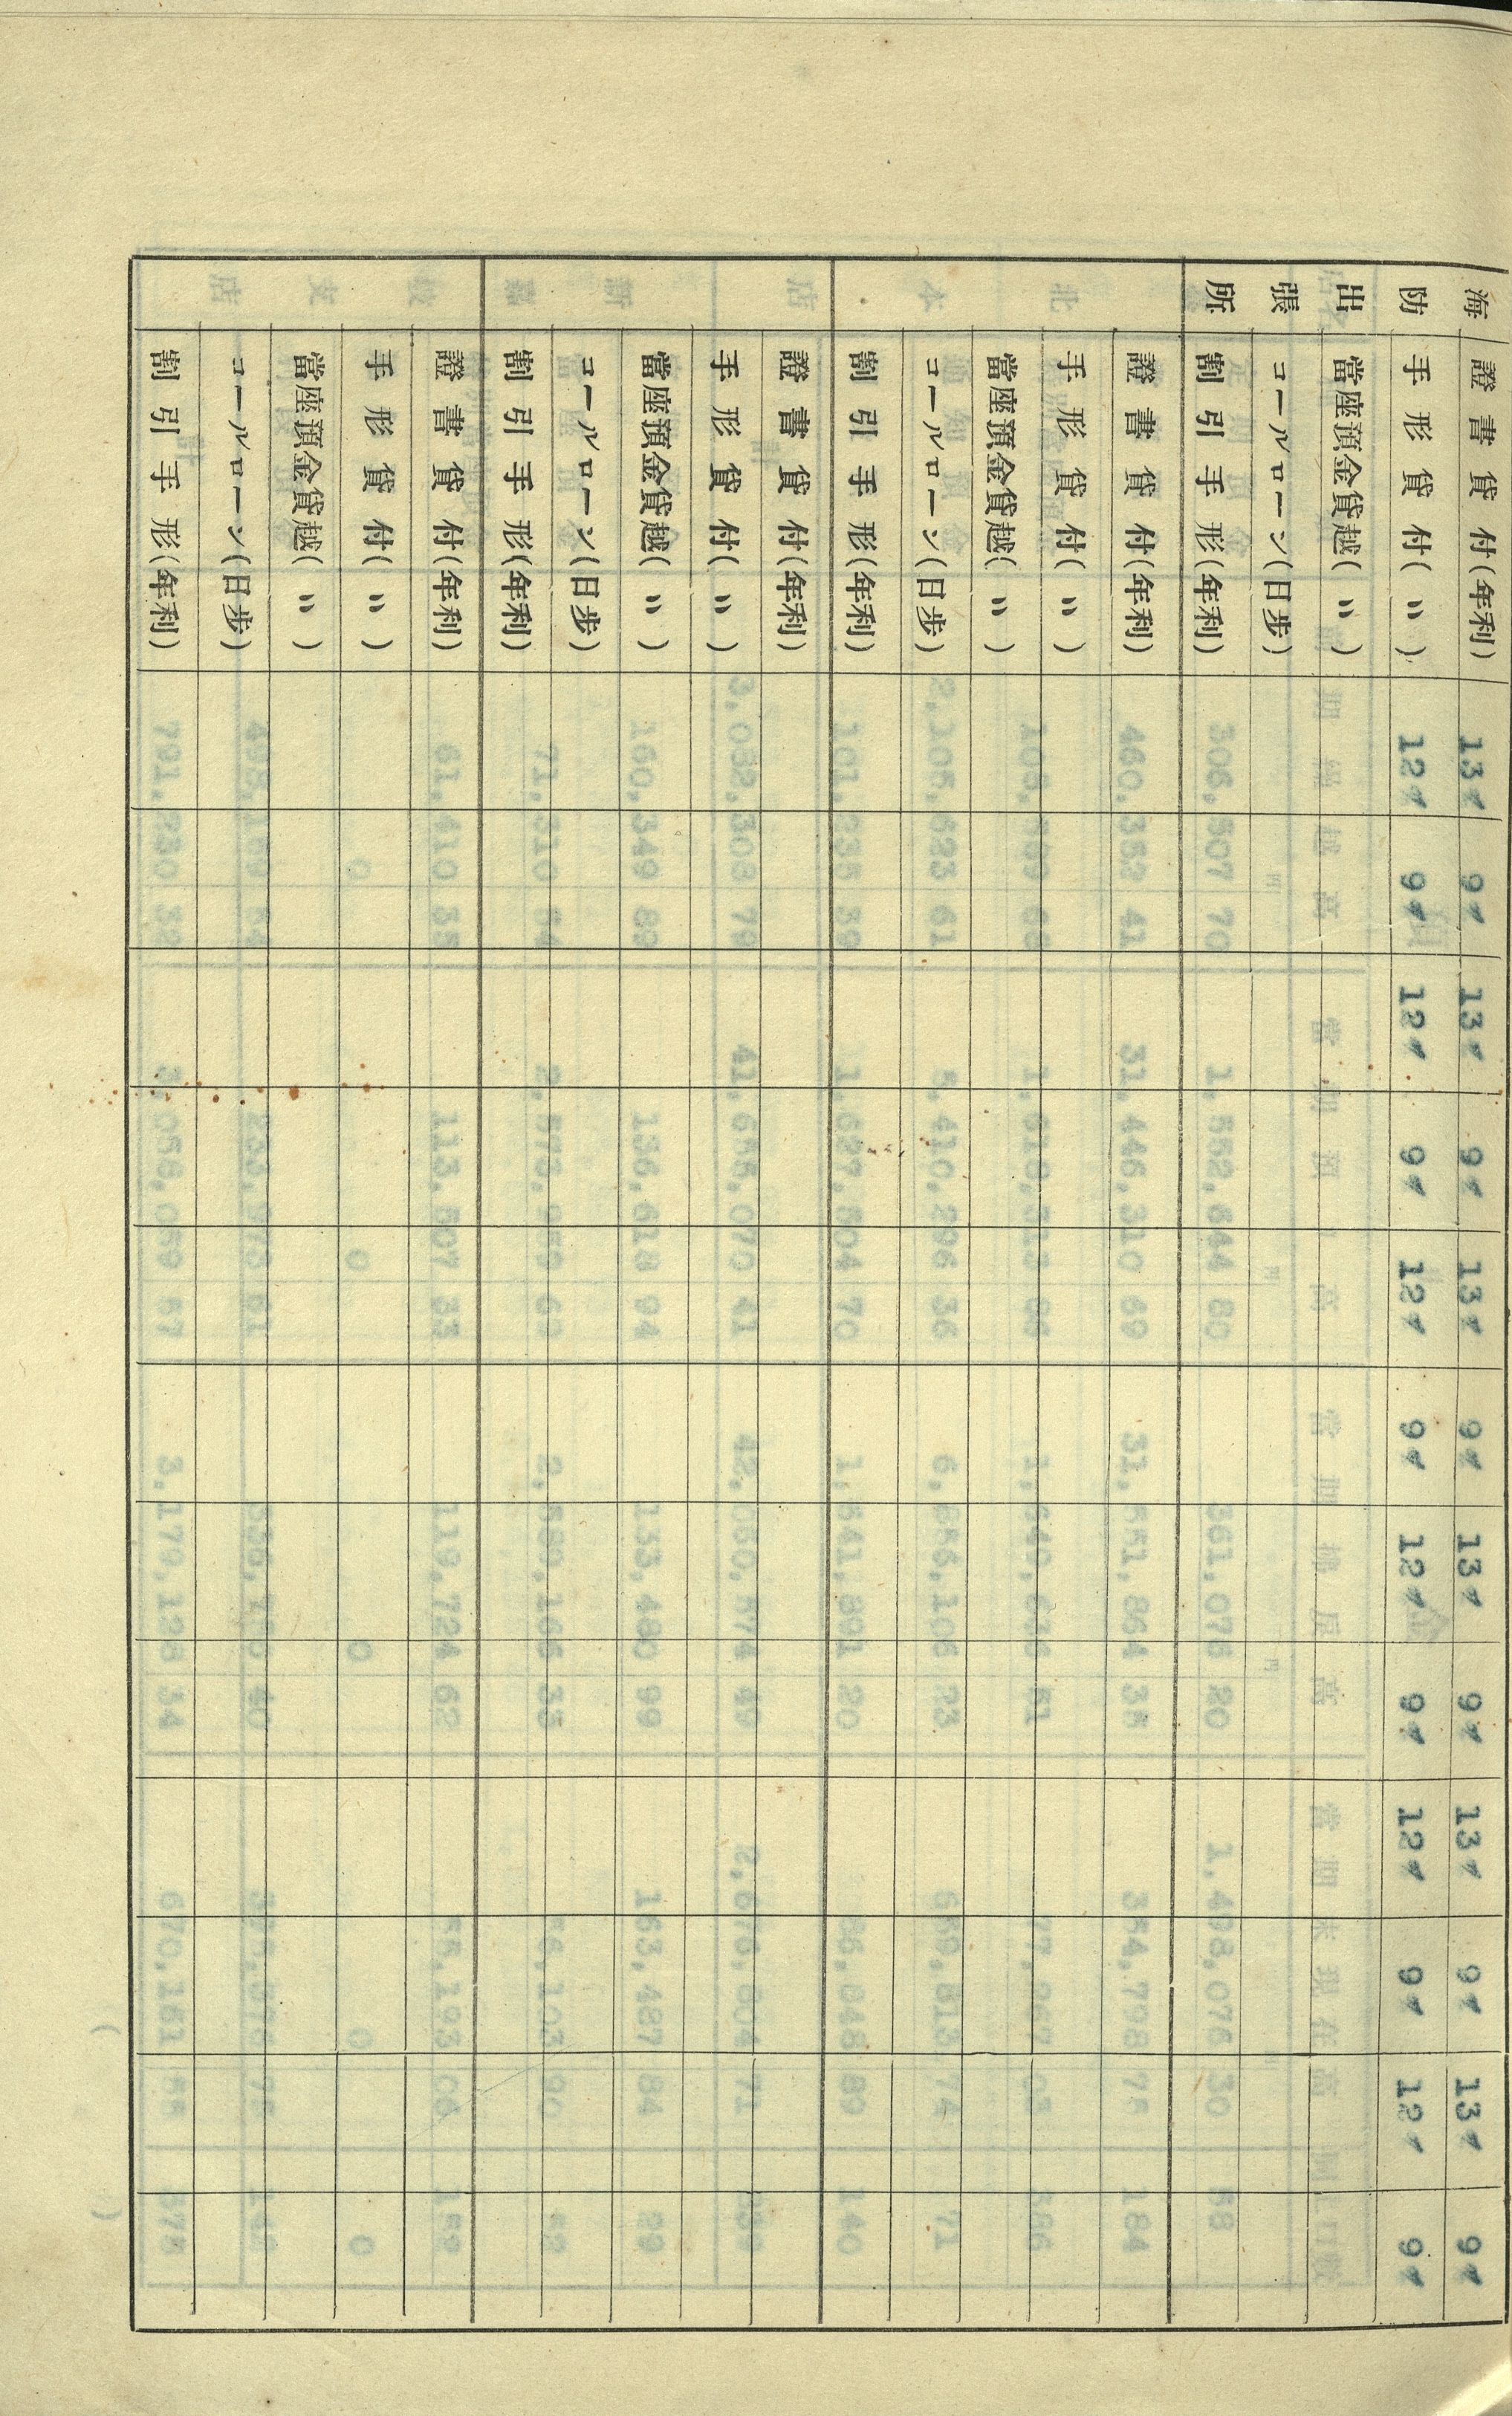 海 證書貸付(年利) 13〃 9〃 13〃 9〃 13〃 9〃 13〃 9〃 13〃 9〃 13〃 9〃
防 手形貸付(〃) 12〃 9〃 12〃 9〃 12〃 9〃 12〃 9〃 12〃 9〃 12〃 9〃
出 當座預金貸越(〃)
張 コールローン(日歩)
所 割引手形(年利)
證書貸付(年利)
手形貸付(〃)
當座預金貸越(〃)
コールローン(日歩)
割引手形(年利)
證書貸付(年利)
手形貸付(〃)
當座預金貸越(〃)
コールローン(日歩)
割引手形(年利)
證書貸付(年利)
手形貸付(〃)
當座預金貸越(〃)
コールローン(日歩)
割引手形(年利)